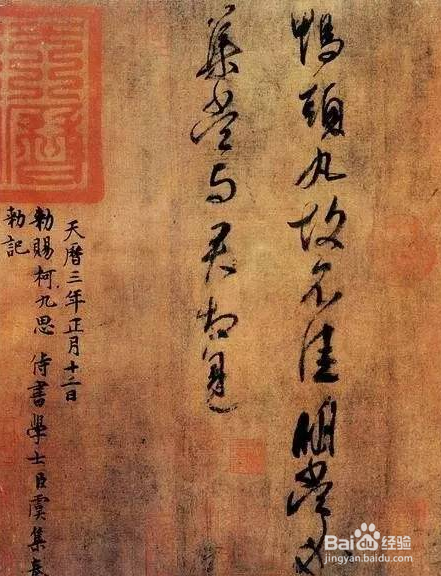 鴨頭丸故不佳明當必
集當与君相見
天曆三年正月十二日
勑賜柯九思 侍書學士臣虞集奉
勑記
Baidu经验
jingyan.baidu.com